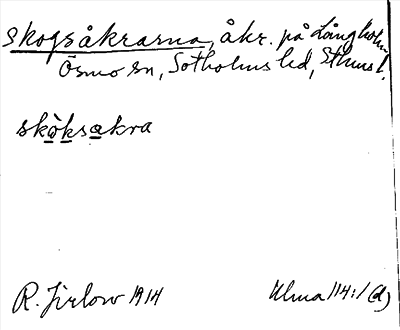 skogsåkrarna, åkr. på Långholm
Ösmo sn, Sotholms hd, Sthms l.
skòksakra
R. Jirlow 1914
Ulma 114:1 (d)